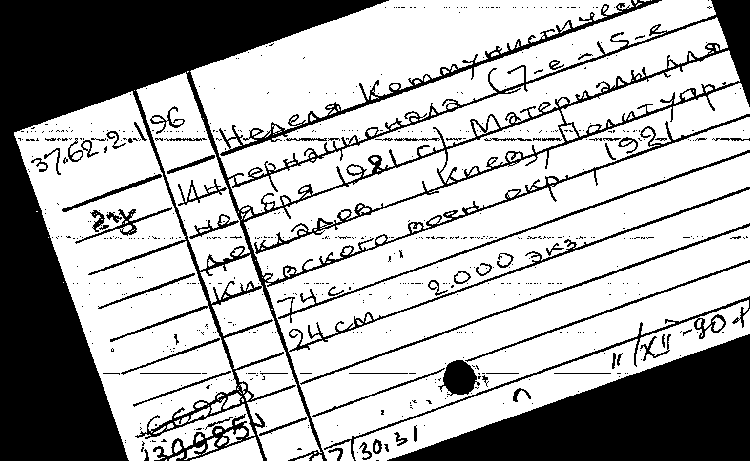 37.62.2.196
Неделя Коммунистическ
Интернационала. (7-е -15-е
ноября 1921 г.). Материалы для
докладов. [Киев], Политупр.
Киевского воен. окр., 1921.
74 с.
24 см. 2.000 экз.
66928
139985